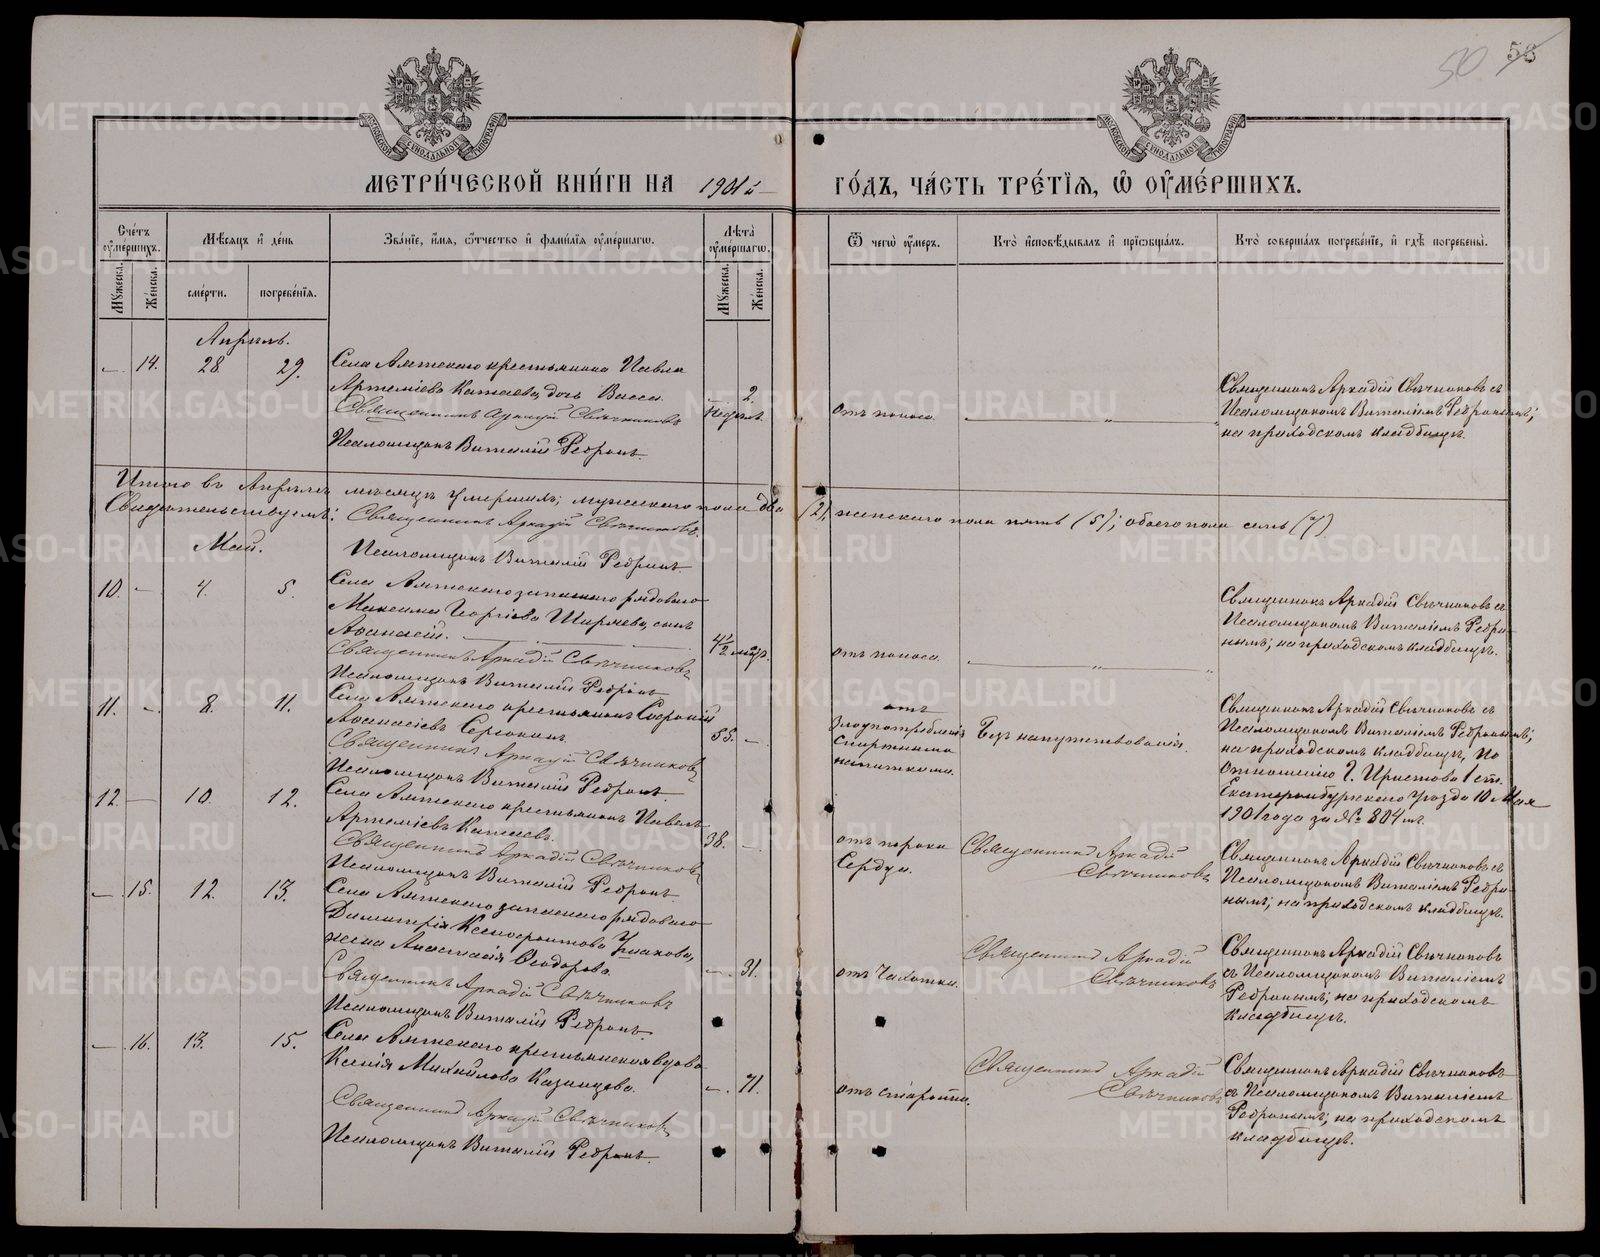 50 58
МЕТРИ́ЧЕСКОЙ КНИ́ГИ НА 1901й ГО́ДЪ, ЧА́СТЬ ТРЕ́ТІѦ, Ѿ ОУ҆МЕ́РШИХЪ.
Счетъ оумершихъ.
Мужеска.
Женска.
Мѣсяцъ и день
смерти.
погребенія.
Званіе, имя, отчество и фамилія оумершагѡ.
Лѣта оумершагѡ.
Мужеска.
Женска.
Ѿ чегѡ оумеръ.
Кто исповѣдывалъ и пріобщалъ.
Кто совершалъ погребеніе, и гдѣ погребены.
Апрѣль.
— 14. 28. 29.
Села Аятскаго крестьянина Павла
Артеміева Катаева, дочь Васса.
2. недѣл.
Священникъ Аркадій Свѣчниковъ
Псаломщикъ Виталій Ребринъ.
отъ поноса.
Священникъ Аркадій Свѣчниковъ съ
Псаломщикомъ Виталіемъ Ребринымъ;
на приходскомъ кладбищѣ.
Итого въ Апрѣлѣ мѣсяцѣ умершихъ; мужескаго пола два (2), женскаго пола пять (5); обоего пола семь (7)
Свидѣтельствуемъ: Священникъ Аркадій Свѣчниковъ.
Псаломщикъ Виталій Ребринъ.
Май.
10. — 4. 5.
Села Аятскаго запаснаго рядоваго
Максима Георгіева Ширяева, сынъ
Аѳанасій.
4½ мѣс.
Священникъ Аркадій Свѣчниковъ
Псаломщикъ Виталій Ребринъ
отъ поноса.
Священникъ Аркадій Свѣчниковъ съ
Псаломщикомъ Виталіемъ Ребри-
нымъ; на приходскомъ кладбищѣ.
11. — 8. 11.
Села Аятскаго крестьянинъ Софроній
Аѳанасіевъ
55. —
Священникъ Аркадій Свѣчниковъ
Псаломщикъ Виталій Ребринъ.
отъ
злоупотребленія
спиртными
напитками.
Безъ напутствованія.
Священникъ Аркадій Свѣчниковъ съ
Псаломщикомъ Виталіемъ Ребринымъ;
на приходскомъ кладбищѣ, по
отношенію Г. Пристава 1 ст.
Екатеринбургскаго уѣзда 10 Мая
1901 года за № 804 мъ.
12. — 10. 12.
Села Аятскаго крестьянинъ Павелъ
Артеміевъ Катаевъ.
38. —
Священникъ Аркадій Свѣчниковъ
Псаломщикъ Виталій Ребринъ.
отъ порока
сердца.
Священникъ Аркадій
Свѣчниковъ
Священникъ Аркадій Свѣчниковъ съ
Псаломщикомъ Виталіемъ Ребри-
нымъ; на приходскомъ кладбищѣ.
— 15. 12. 13.
Села Аятскаго запаснаго рядоваго
Димитрія Ксенофонтова Ушакова,
жена Анастасія Ѳеодорова.
— 31.
Священникъ Аркадій Свѣчниковъ
Псаломщикъ Виталій Ребринъ.
отъ чахотки.
Священникъ Аркадій
Свѣчниковъ
Священникъ Аркадій Свѣчниковъ
съ Псаломщикомъ Виталіемъ
Ребринымъ; на приходскомъ
кладбищѣ.
— 16. 13. 15.
Села Аятскаго крестьянская вдова
Ксенія Михайлова Казанцева.
— 71.
Священникъ Аркадій Свѣчниковъ
Псаломщикъ Виталій Ребринъ.
отъ старости.
Священникъ Аркадій
Свѣчниковъ
Священникъ Аркадій Свѣчниковъ
съ Псаломщикомъ Виталіемъ
Ребринымъ; на приходскомъ
кладбищѣ.
METRIKI.GASO-URAL.RU